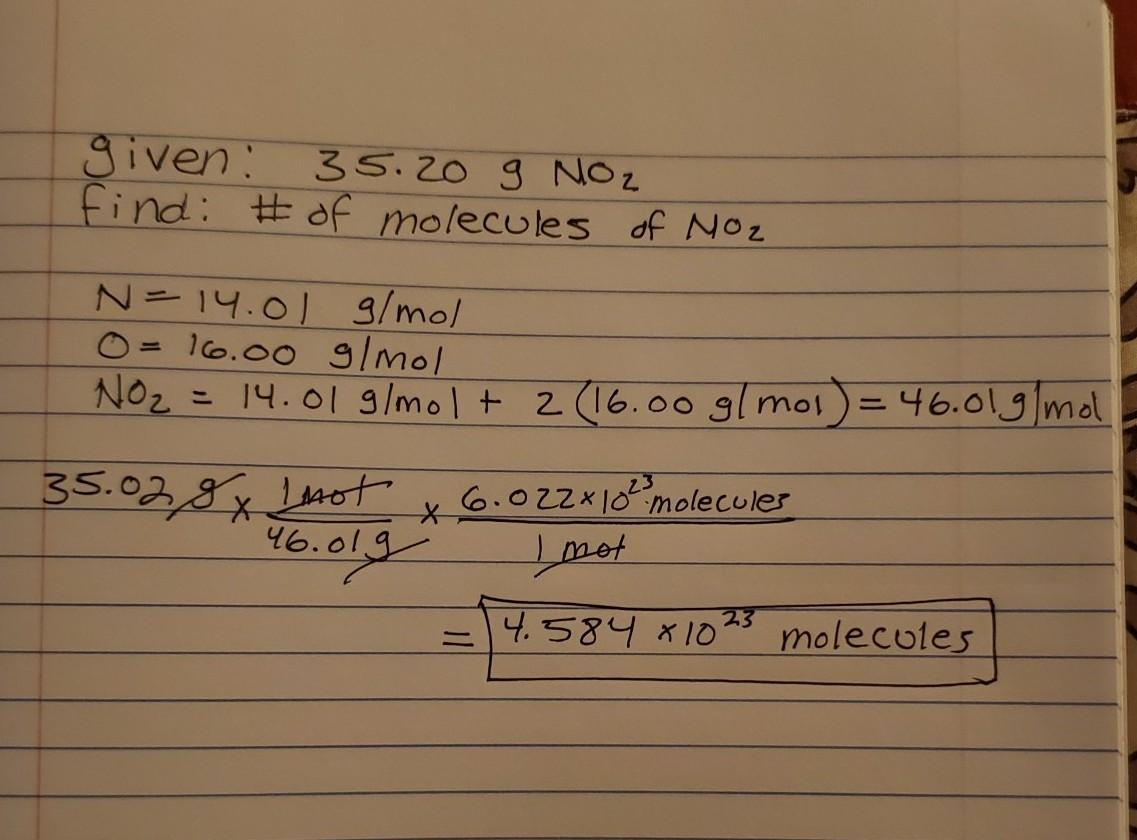 given: 35.20 g NO₂
find: # of molecules of NO₂
N = 14.01 g/mol
O = 16.00 g/mol
NO₂ = 14.01 g/mol + 2 (16.00 g/mol) = 46.01 g/mol
35.02 g x 1 mol x 6.022 x 10²³ molecules
46.01 g 1 mol
= 4.584 x 10²³ molecules